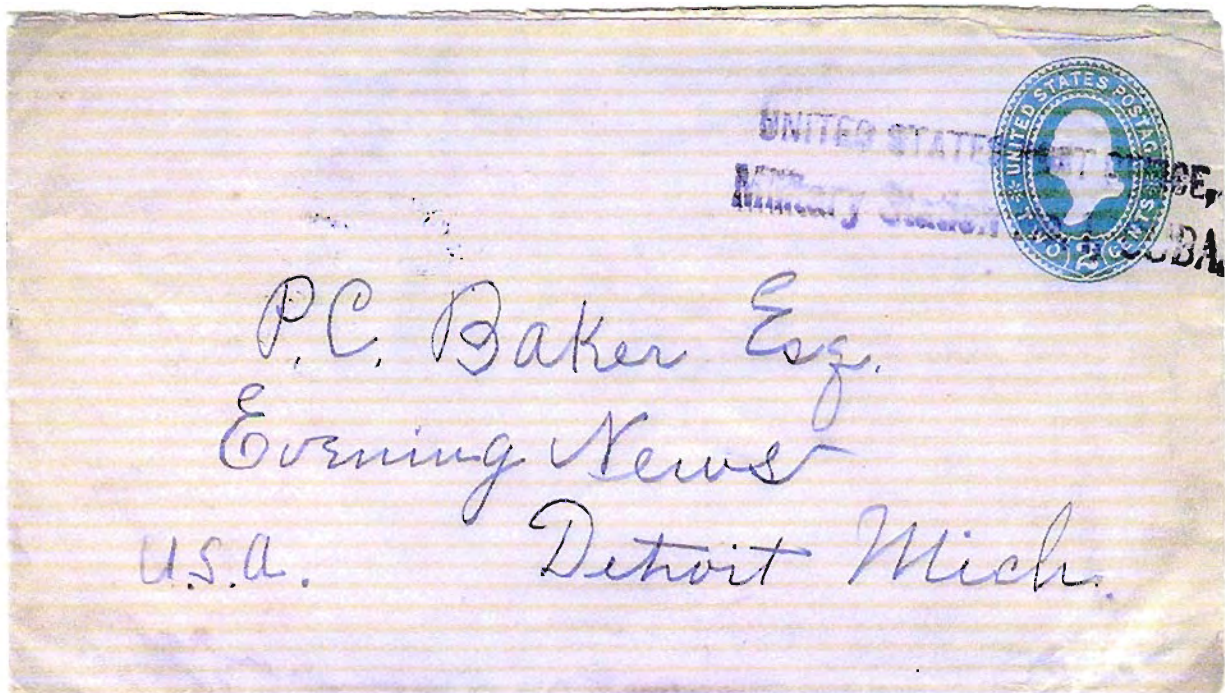 UNITED STATES POSTAGE
TWO 2 CENTS
UNITED STATES
Military Station CUBA.
P.C. Baker Esq.
Evening News
U.S.A. Detroit Mich.